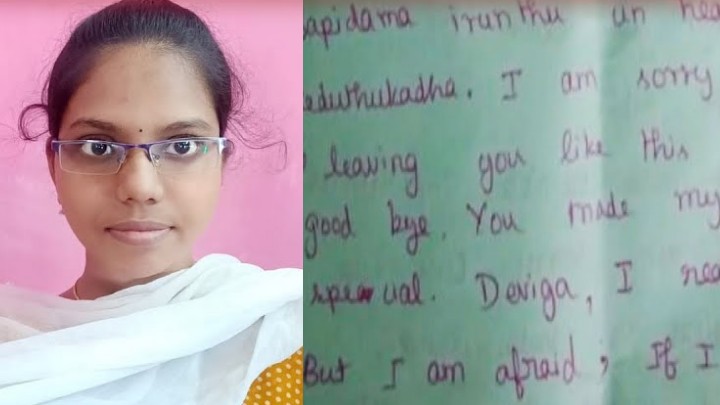 apidama irunthu un
eduthukadha. I am sorry
leaving you like this
good bye. You made my
special. Deviga, I
But I am afraid; If I